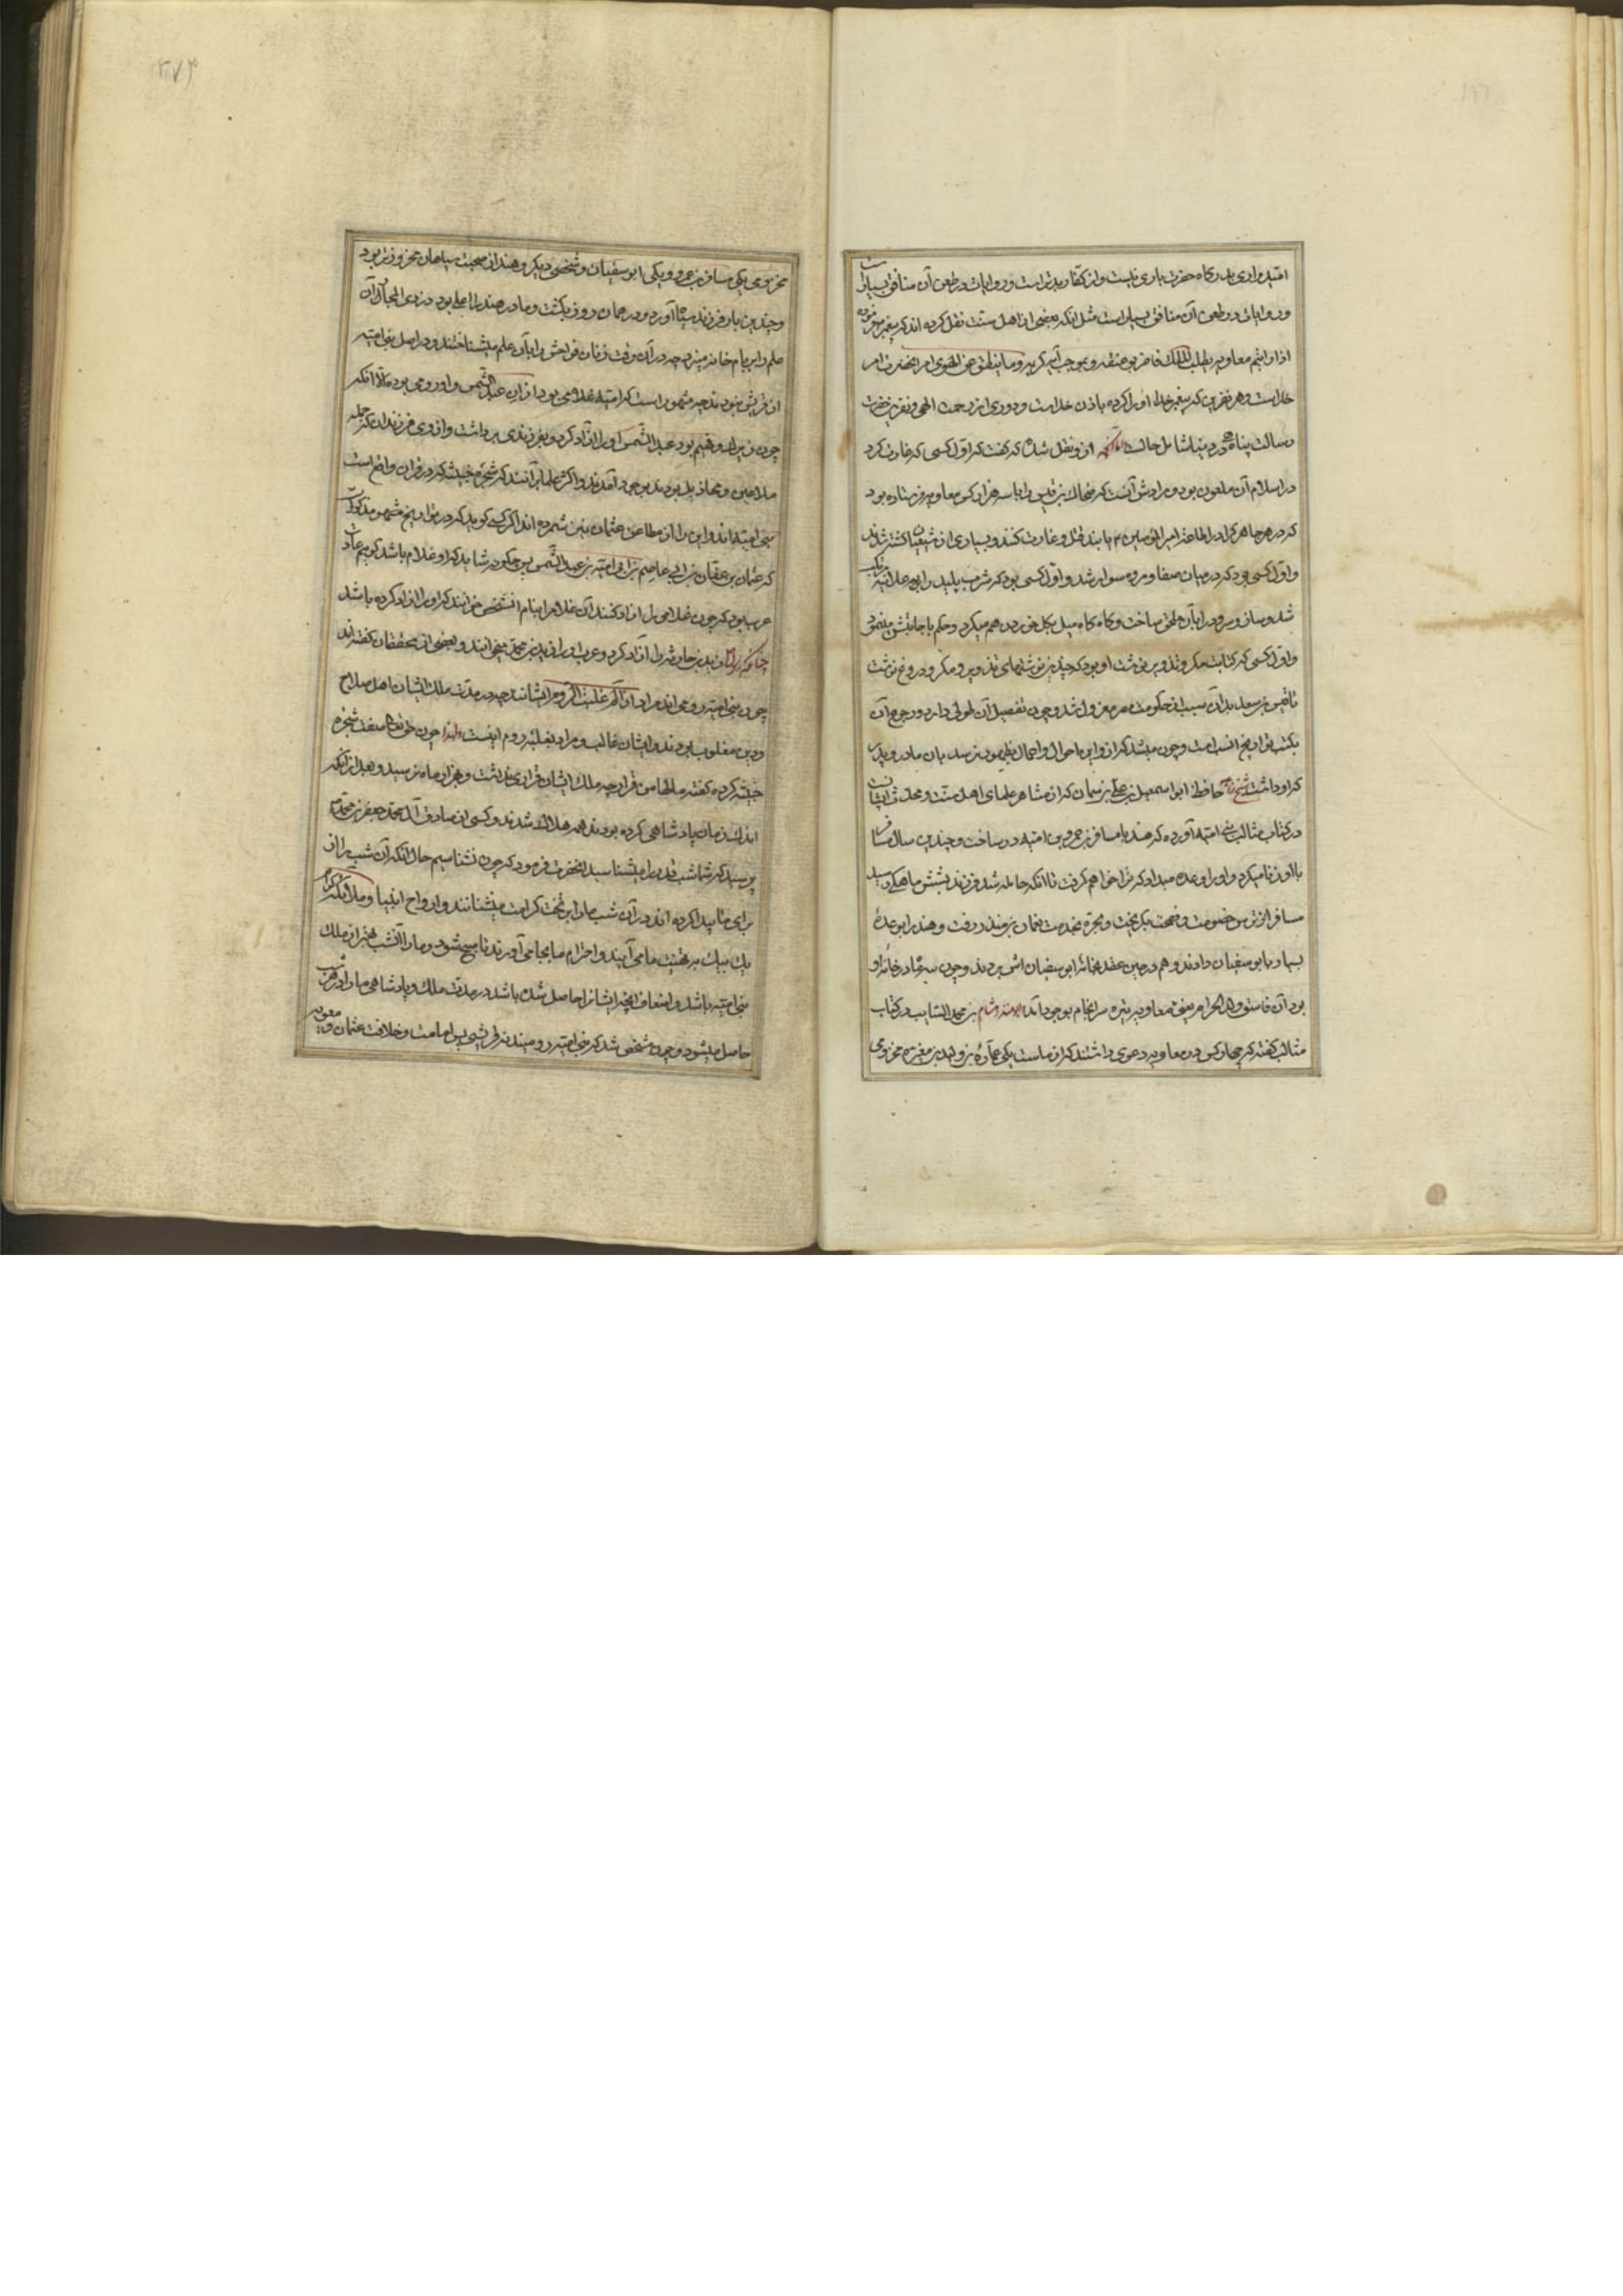 امید واری بدرگاه حضرت باری نیست و از کفار بدتر است و روایات در طعن آن منافق بسیار است
و روایات در طعن آن منافق بسیار است مثل آنکه بعضی از اهل سنت نقل کرده اند که پیغمبر فرموده
اذا رایتم معاویه یطلب الملک فاضربوا عنقه و بموجب آیه کریمه و ما ینطق عن الهوی امر آنحضرت امر
خداست و هر نفرین که پیغمبر خدا او را کرده باذن خداست و دوری از رحمت الهی و نفرین حضرت
رسالت پناه در دنیا شامل حال از و نقل شده که گفت که اول کسی که غارت کرد
در اسلام آن ملعون بود و مرادش آنست که ضحاک بن قیس را با سه هزار کس معاویه فرستاده بود
که در هر جا هر که را در اطاعت امیر المؤمنین یابند قتل و غارت کنند و بسیاری از شیعیان کشته شدند
و اول کسی بود که در میان صفا و مروه سوار شد و اول کسی بود که شرب پلید را بر علانیه مرتکب
شد و ساز و سرود را بآن ملحق ساخت و گاه گاه میل بگل خوردن هم میکرد و حکم باجابتش مینمود
و اول کسی که کتابت مکر و تزویر نوشت او بود که چندین نوشتهای تزویر و مکر و دروغ نوشت
تا قیس بن سعد بدان سبب از حکومت مصر معزول شد و چون تفصیل آن طولی دارد رجوع آن
بکتب تواریخ انسب است و چون میشد که از و این احوال و اعمال بظهور نرسد بان مادر و پدر
که او داشت حافظ ابو اسمعیل بن علی بن سمان که از مشاهر علمای اهل سنت و محدثان ایشان است
در کتاب مثالب بنی امیه آورده که هند با مسافر بن عمرو بن امیه در ساخت و چندین سال مسافر
با او زنا میکرد و او را وعده میداد که ترا خواهم گرفت تا آنکه حامله شد و فرزند بشش ماهگی رسید
مسافر از ترس خصومت و فضیحت بگریخت و بحره بخدمت نعمان بن منذر رفت و هند را بوعده
بسیار بابو سفیان دادند و هم در حین عقد بخانه ابو سفیان اش بردند و چون سه ماه در خانه او
بود آن فاسق ولد الحرام یعنی معاویه تیره سرانجام بوجود آمد و هشام بن محمد السایب در کتاب
مثالب گفته که چهار کس در معاویه دعوی داشتند که از ماست یکی عماره بن ولید بن مغیره مخزومی
مخزومی یکی مسافر بن عمرو و یکی ابو سفیان و شخصی دیگر و هند از صحبت سیاهان محظوظتر بود
و چندین بار فرزند سیاه آورد و در همان روز بکشت و مادر هند را علم بود در ذی المجاز آن
علم را بر بام خانه میزد چه در آن وقت زنان فواحش را بآن علم میشناختند و در اصل بنی امیه
از قریش نبودند چه مشهور است که امیه غلامی بود از آن عبد الشمس و او رومی بوده الا آنکه
چون زیرک و فهیم بود عبد الشمس او را آزاد کرد و بفرزندی برداشت و از وی فرزندان که جمله
ملاعین و مخاذیل بودند بوجود آمدند و اکثر علما بر آنند که شجره خبیثه که در قران واقع است
بنی امیه اند و این را از مطاعن عثمان نیز شمرده اند اگر کسی گوید که در تواریخ مشهور مذکور است
که عثمان بن عفان بن ابی عاصم بن امیه بن عبد الشمس پس چگونه شاید که او غلام باشد گوییم عادت
عرب بود که چون غلامی را آزاد کنند آن غلام را بنام آن شخص خوانند که او را آزاد کرده باشد
زید بن حارثه را آزاد کرد و عرب او را زید بن محمد میخوانند و بعضی از محققان گفته اند
چون بنی امیه رومی اند مراد از الم غلبت الروم ایشانند چه در مدت ملک ایشان اهل صلاح
و دین مغلوب بودند و ایشان غالب و مراد بغلبه روم اینست چون حق تعالی صفت شجره
خبیثه کرده گفته ما لها من قرار چه ملک ایشان قراری نداشت و بهزار ماه نرسید و بعد از آنکه
اندک زمان پادشاهی کرده بودند همه هلاک شدند و کسی از صادق آل محمد جعفر بن محمد
پرسید که شما شب قدر را میشناسید آنحضرت فرمود که چون نشناسیم حال آنکه آن شب را از
برای ما پیدا کرده اند در آن شب ما را بر تخت کرامت مینشانند و ارواح انبیا و ملائکه کرام
یک بیک بر تهنیت ما می آیند و احترام ما بجا می آورند تا صبح شود و ما را آن شب بهتر از ملک
بنی امیه باشد و اضعاف آنچه ایشانرا حاصل شده باشد در مدت ملک و پادشاهی ما را در آن شب
حاصل میشود و چون مشخص شد که بنی امیه رومیند نه قرشی پس امامت و خلافت عثمان و معویه